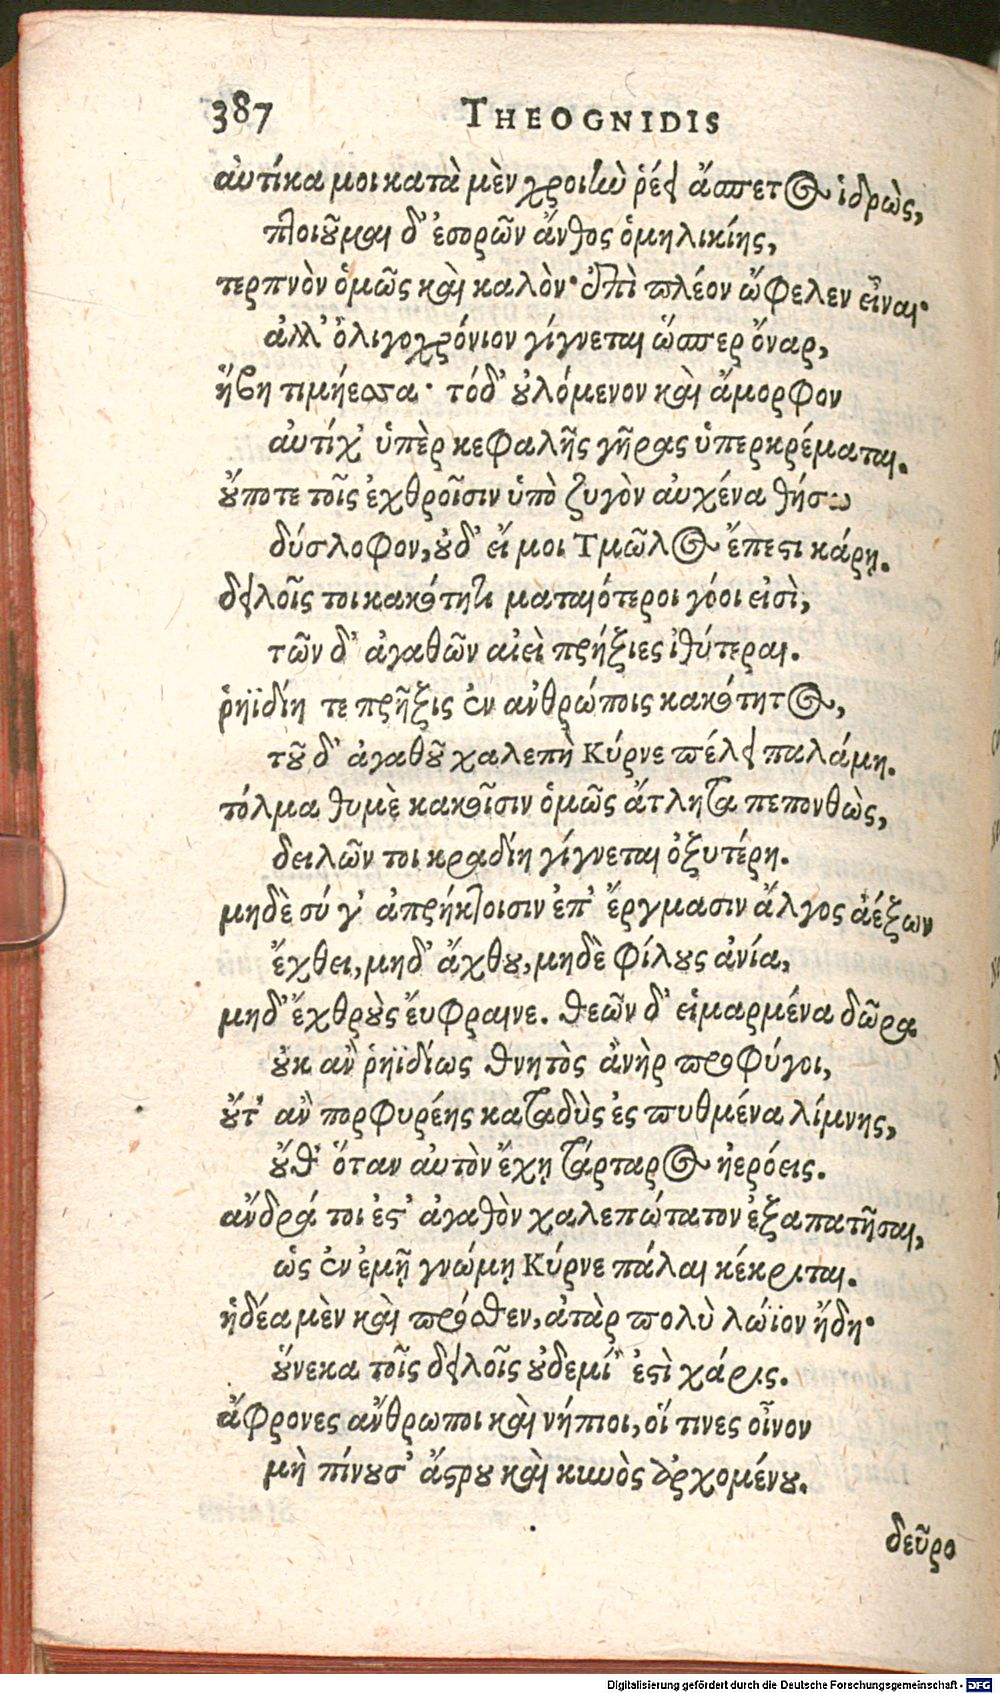 387 THEOGNIDIS
αὐτίκα μοι κατὰ μὲν χροιὴν ῥέει ἄσπετος ἱδρὼς,
πτοιοῦμαι δ' ἐσορῶν ἄνθος ὁμηλικίης,
τερπνὸν ὁμῶς καὶ καλὸν· ἐπὶ πλέον ὤφελεν εἶναι·
ἀλλ' ὀλιγοχρόνιον γίγνεται ὥσπερ ὄναρ,
ἥβη τιμήεσσα· τόδ' οὐλόμενον καὶ ἄμορφον
αὐτίχ' ὑπὲρ κεφαλῆς γῆρας ὑπερκρέμαται.
οὔποτε τοῖς ἐχθροῖσιν ὑπὸ ζυγὸν αὐχένα θήσω
δύσλοφον, οὐδ' εἴ μοι Τμῶλος ἔπεστι κάρῃ.
δειλοῖς τοι κακότητι ματαιότεροι γόοι εἰσὶ,
τῶν δ' ἀγαθῶν αἰεὶ πρήξιες ἰθύτεραι.
ῥηϊδίη τε πρῆξις ἐν ἀνθρώποις κακότητος,
τοῦ δ' ἀγαθοῦ χαλεπὴ Κύρνε πέλει παλάμη.
τόλμα θυμὲ κακοῖσιν ὁμῶς ἄτλητα πεπονθὼς,
δειλῶν τοι κραδίη γίγνεται ὀξυτέρη.
μηδὲ σύ γ' ἀπρήκτοισιν ἐπ' ἔργμασιν ἄλγος ἀέξων
ἔχθει, μηδ' ἄχθου, μηδὲ φίλους ἀνία,
μηδ' ἔχθροὺς ἔυφραινε. θεῶν δ' εἱμαρμένα δῶρα
οὐκ ἂν ῥηϊδίως θνητὸς ἀνὴρ προφύγοι,
οὔτ' ἂν πορφυρέης καταδὺς ἐς πυθμένα λίμνης,
οὔθ' ὅταν αὐτὸν ἔχῃ τάρταρος ἠερόεις.
ἄνδρά τοι ἐστ' ἀγαθὸν χαλεπώτατον ἐξαπατῆσαι,
ὡς ἐν ἐμῇ γνώμῃ Κύρνε πάλαι κέκριται.
ἡδέα μὲν καὶ πρόσθεν, ἀτὰρ πολὺ λώϊον ἤδη·
οὕνεκα τοῖς δειλοῖς οὐδεμί' ἐστὶ χάρις.
ἄφρονες ἄνθρωποι καὶ νήπιοι, οἵ τινες οἶνον
μὴ πίνουσ' ἄστρου καὶ κυνὸς ἀρχομένου.
δεῦρο
Digitalisierung gefördert durch die Deutsche Forschungsgemeinschaft - DFG